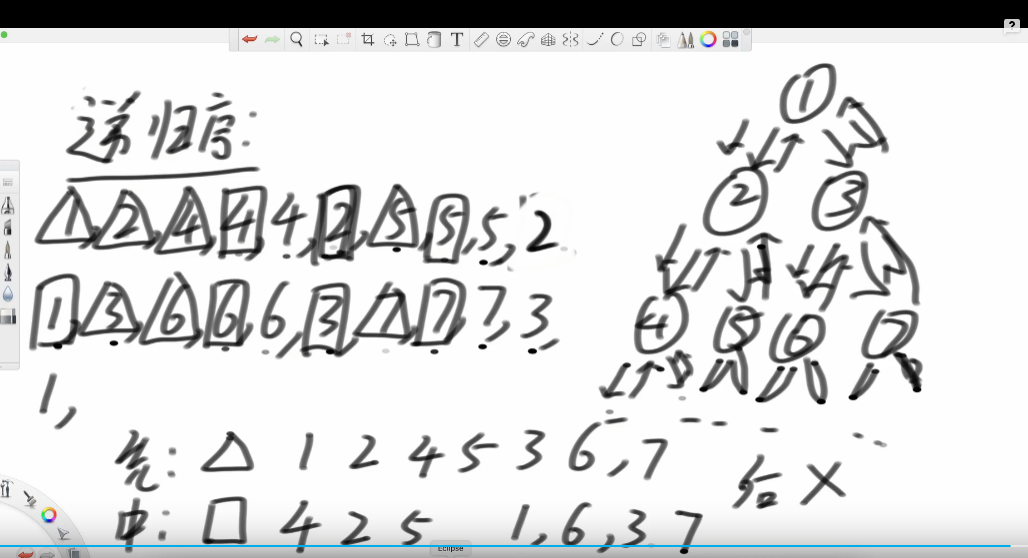 递归序:
1, 2, 4, 4, 4, 2, 5, 5, 5, 2
1, 3, 6, 6, 6, 3, 7, 7, 7, 3,
1,
先: △ 1 2 4 5 3 6, 7
中: □ 4 2 5 1, 6, 3 7
后 ×
1
2 3
4 5 6 7
T
?
Eclipse